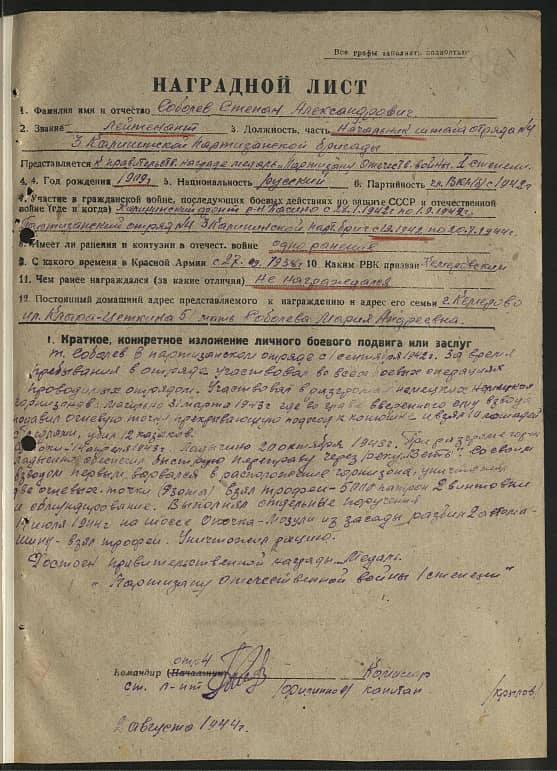 Все графы заполнять полностью
НАГРАДНОЙ ЛИСТ
1. Фамилия имя и отчество Соболев Степан Александрович
2. Звание Лейтенант 3. Должность, часть Начальник штаба отряда №4
3 Калининской Партизанской бригады
Представляется к правительств. награде медаль „Партизану Отечеств. войны" I степени.
4. Год рождения 1909г 5. Национальность Русский 6. Партийность чл. ВКП(б) с 1942г
Участие в гражданской войне, последующих боевых действиях по защите СССР и отечественной
войне (где и когда) Калининский фронт р-н с 28.1.1942г по 1.9.1942г.
Партизанский отряд №4 3 Калининской парт. бриг с 1.9.1942 по 20.7.1944г.
8. Имеет ли ранения и контузии в отечест. войне одно ранение
9. С какого времени в Красной Армии с 27. 1938г 10. Каким РВК призван Кемеровским
11. Чем ранее награждался (за какие отличия) Не награждался
12. Постоянный домашний адрес представляемого к награждению и адрес его семьи г. Кемерово
ул. Клара-Цеткина 5 мать Соболева Мария Андреевна.
I. Краткое, конкретное изложение личного боевого подвига или заслуг
т. Соболев в партизанском отряде с 1 сентября 1942г. За время
пребывания в отряде участвовал во всех боевых операциях
проводимых отрядом. Участвовал в разгроме немецких
гарнизонов 31 марта 1943г где во главе вверенного ему взвода
подавил огневую точку прекрывающую подход к конюшне и взял 10 лошадей
с седлами, убил 12 казаков.
1 апреля 1943г. Ладыгино 20 октября 1943г. При разгроме гарн.
Ладыгино обеспечил быструю переправу через реку со своим
взводом первым, ворвался в расположение гарнизона, уничтожил
две огневых точки (Дзота) взял трофеи - 5000 патрон 2 винтовки
и обмундирование. Выполнял отдельные поручения
июля 1944г на шоссе Опочка-Мозули из засады разбил 2 автома-
шины - взял трофеи. Уничтожил рацию.
Достоен правительственной награды. Медаль
„Партизану Отечественной войны I степени"
отр 4
Командир (Начальник) Комиссар
ст. л-нт капитан /Крылов/
2 августа 1944г.